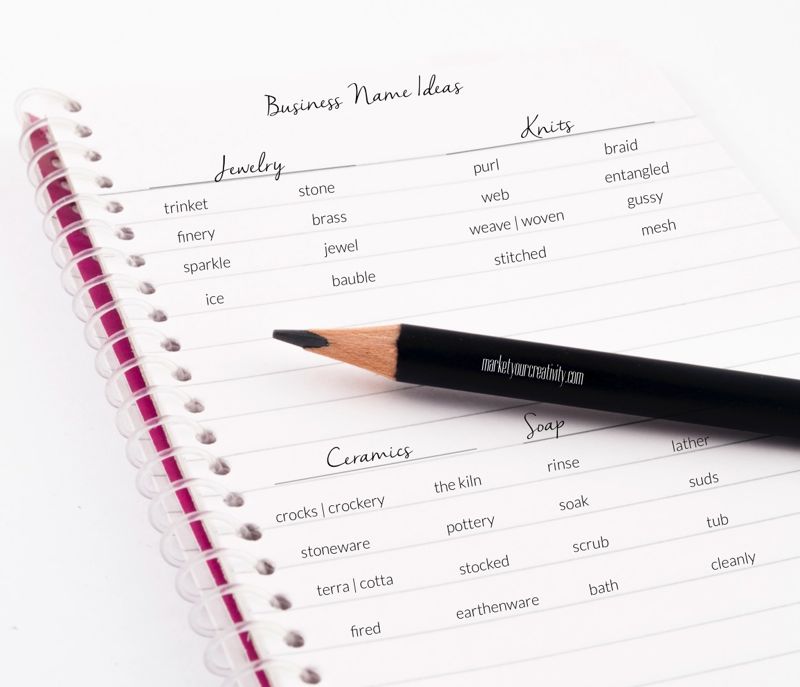 Business Name Ideas
Jewelry
trinket stone
finery brass
sparkle jewel
ice bauble
Knits
purl braid
web entangled
weave | woven gussy
stitched mesh
marketyourcreativity.com
Ceramics
crocks | crockery the kiln
stoneware pottery
terra | cotta stocked
fired earthenware
Soap
rinse lather
soak suds
scrub tub
bath cleanly